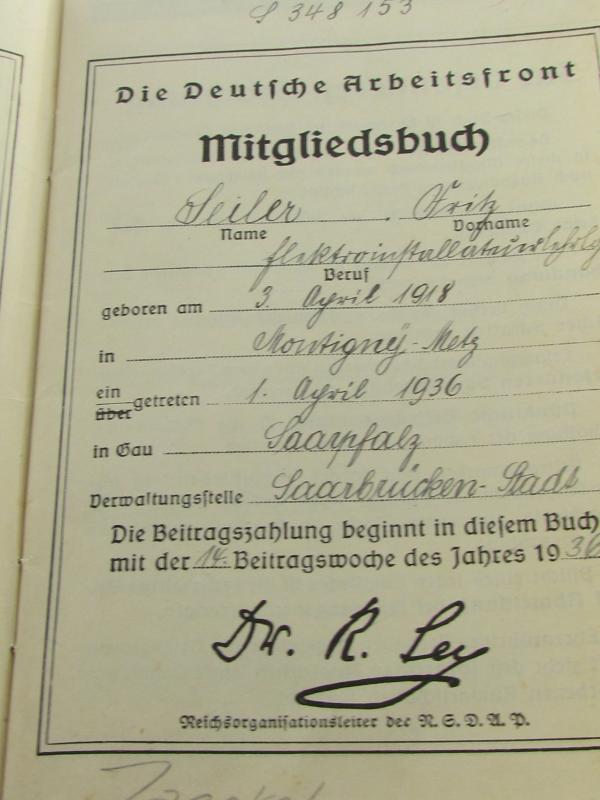 S 348 153
Die Deutsche Arbeitsfront
Mitgliedsbuch
Seiler . Fritz
Name Vorname
Elektroinstallateurlehrlg
Beruf
geboren am 3. April 1918
in Montigny-Metz
ein
über getreten 1. April 1936
in Gau Saarpfalz
Verwaltungsstelle Saarbrücken-Stadt
Die Beitragszahlung beginnt in diesem Buch
mit der 14. Beitragswoche des Jahres 1936
Dr. R. Ley
Reichsorganisationsleiter der N.S.D.A.P.